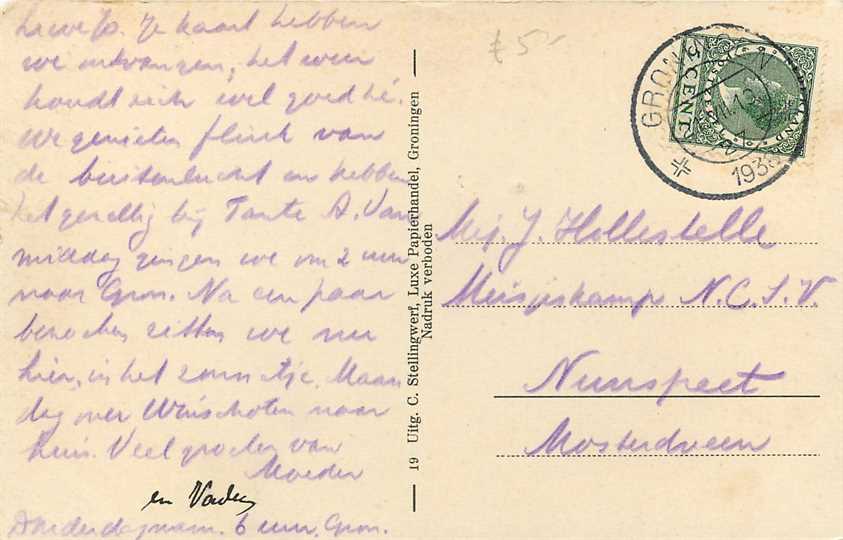 Lieve Jo. Je kaart hebben
we ontvangen, het weer
houdt zich wel goed hè.
We genieten flink van
de buitenlucht en hebben
het gezellig bij Tante A. Van
middag gingen we om 2 uur
naar Gron. Na een paar
bezoeken zitten we nu
hier, in het zonnetje. Maan
dag over Winschoten naar
huis. Veel groeten van
Moeder
en Vader
Donderdagnam. 6 uur, Gron.
£ 5-
19 Uitg. C. Stellingwerf, Luxe Papierhandel, Groningen
Nadruk verboden
GRONINGEN
193
5 CENT
Mej. J. Hollestelle
Meisjeskamp N.C.S.V.
Nunspeet
Mosterdveen